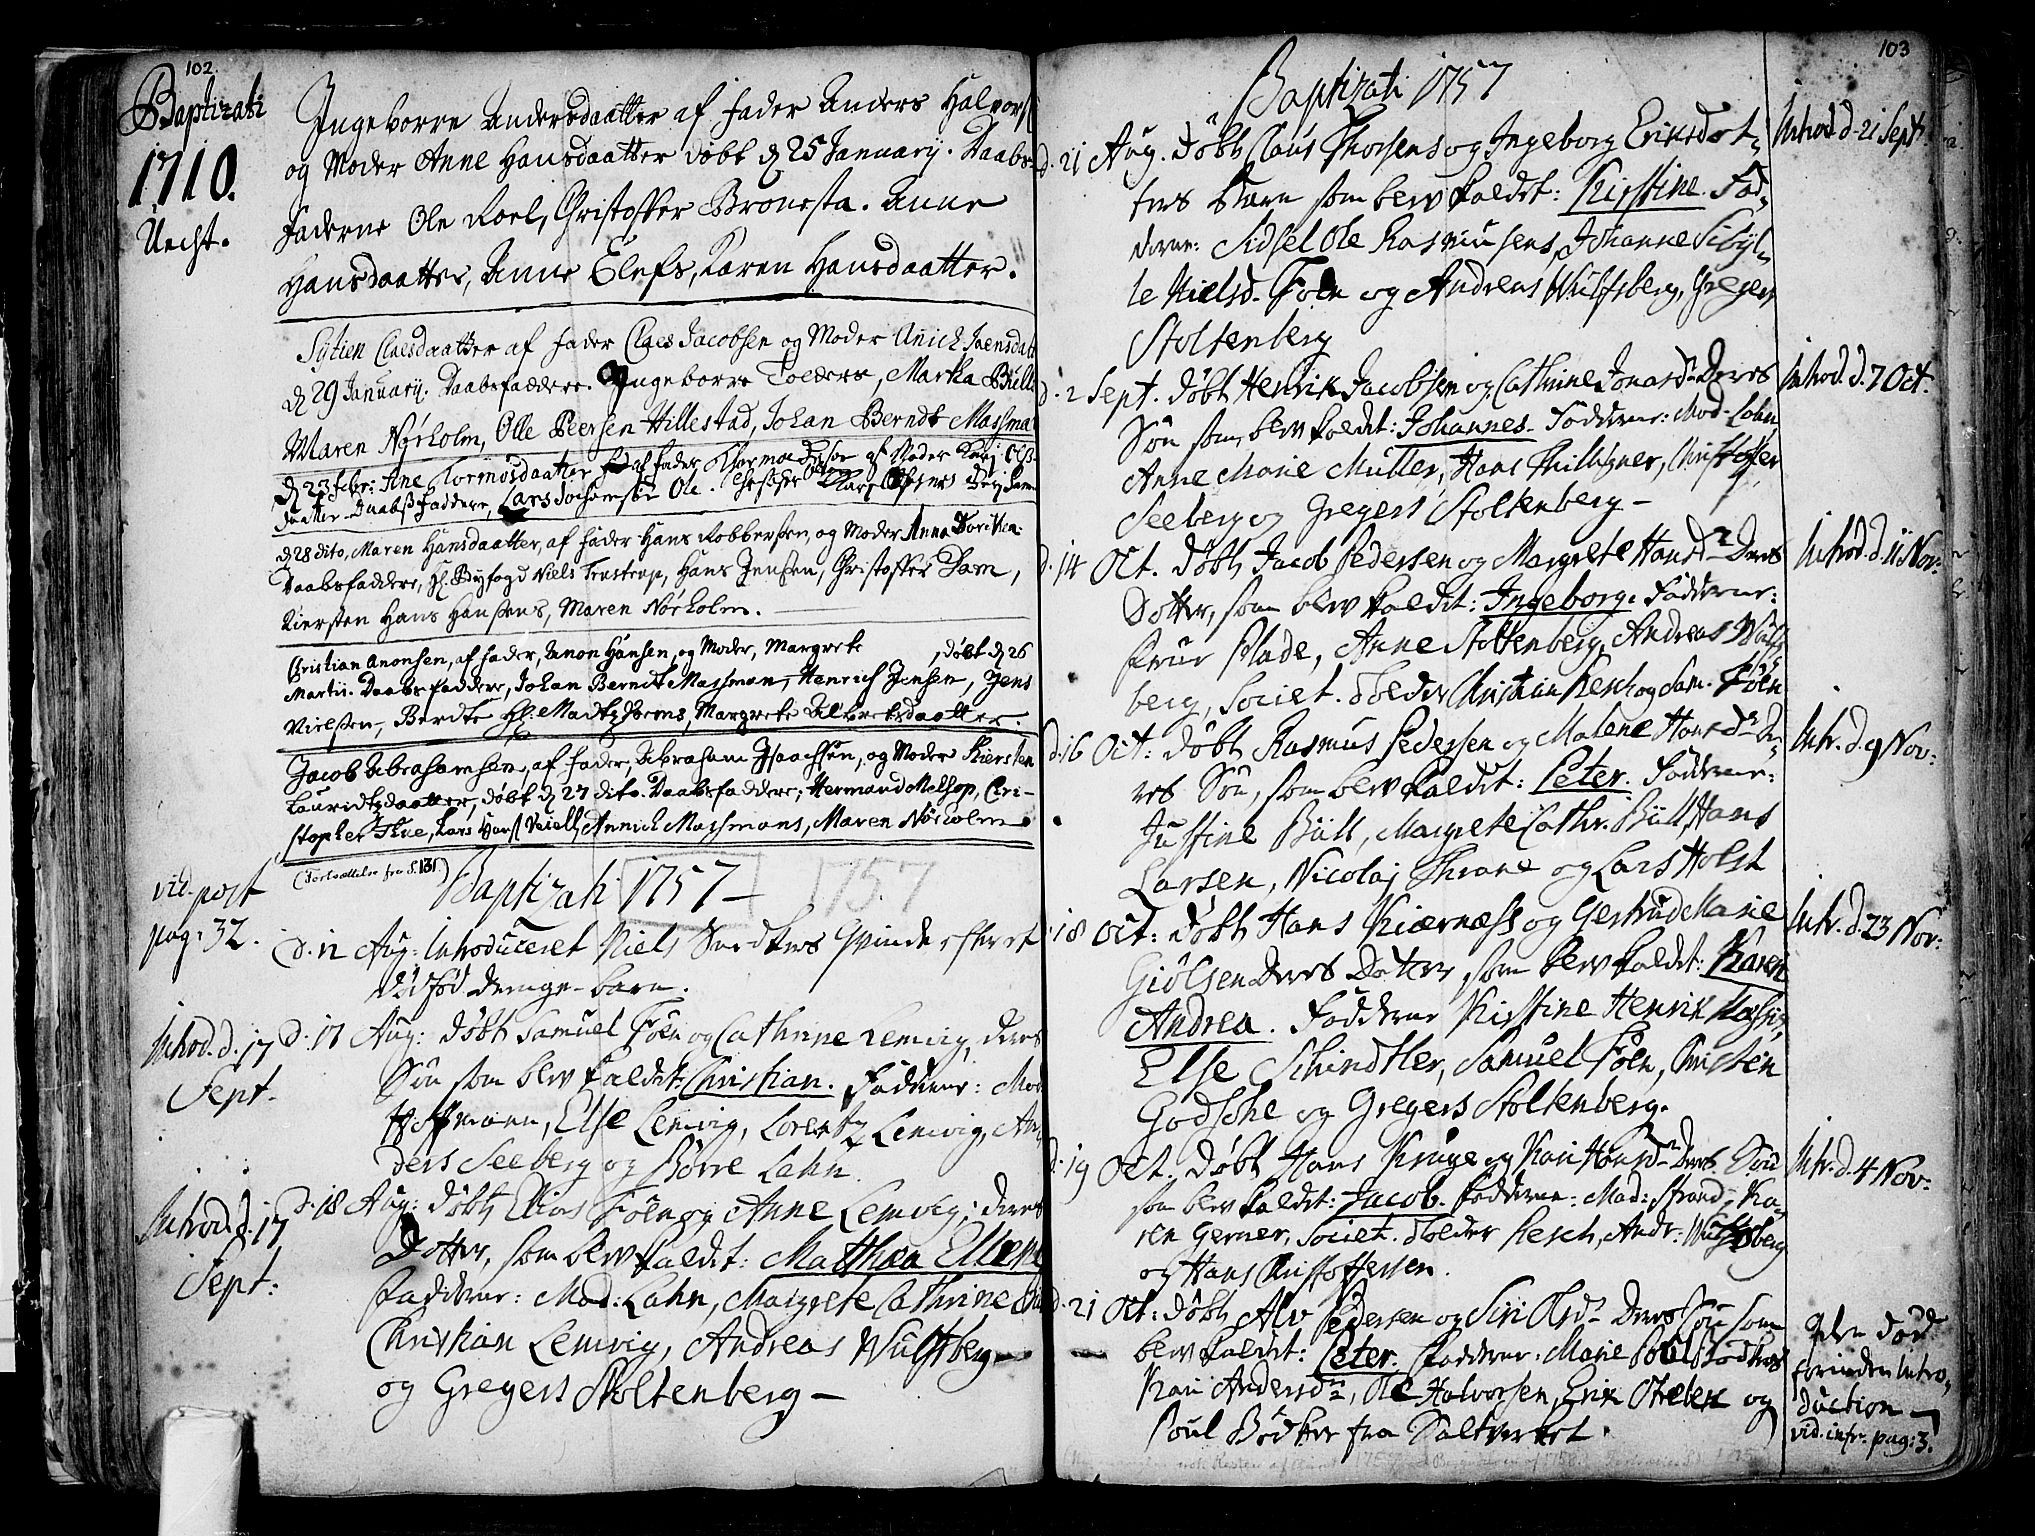 102.
Baptizati
1710.
Uecht.
Ingeborre Andersdaatter af fader Anders Halvors
og Moder Anne Hansdaatter döbt d 25 January. Daabs-
faderne Ole Roel, Christoffer Bronesta. Anne
Hansdaatter, Anne Elefs, Karen Hansdaatter.
Sytien Claesdaatter af fader Claes Jacobsen og Moder Anich Jaensdat
d 29 January. Daabsfaddere. Ingeborre Tolders, Martha Bull
Maren Nörholm, Olle Peersen Hillestad, Johan Berndt Massman
d 23 febr: Ane Tormosdaatter af fader Thormod af Moder Kari Ols-
daatter Daabsfaddere, Lars Jochomsön Ole
d 28 dito, Maren Hansdaatter, af fader Hans Robbersen, og Moder Anna Dorithea
Daabsfaddere, Hr. Byfogd Niels Trustrup, Hans Jensen, Christoffer Dam,
Kiersten Hans Hansens, Maren Nörholm.
Christian Anonsen, af fader, Anon Hansen, og Moder, Margrete , döbt d 26
Martii. Daabsfaddere, Johan Berndt Massman, Henrich Jensen, Jens
Nielsen, Berdte Hr. Madtz Juems, Margrete Albretsdaatter.
Jacob Abrahamsen, af fader, Abraham Isaachsen, og Moder Kiersten
Lauridtzdaatter, döbt d 27 dito. Daabsfaddere; Hermand Melsop, Chri-
stopher Thue, Lars Hans Neiell, Annich Massmans, Maren Nörholm.
(Fortsættelse fra S. 131)
Baptizati 1757 - 1757
vid. post
pag: 32.
D. 12 Aug: Introduceret Niels Snedkers Qvinde efter et
dödfød drenge-barn.
Introd. d. 17
Sept.
D. 17 Aug: döbt Samuel Föen og Cathrine Lemvig, deres
Sön som blev kaldet: Christian. Fadderne: Mad
Hoffmann, Else Lemvig, Lorentz Lemvig, An-
ders Seeberg og Börre Lahn.
Introd. d. 17
Sept:
D. 18 Aug: döbt Elias Föen og Anne Lemvig; deres
Dotter, som blev kaldet: Matthea Ellene
Fadderne: Mad: Lahn, Margrete Cathrine
Christian Lemvig, Andreas Wulfsberg
og Gregers Stoltenberg -
103
Baptizati 1757
d. 21 Aug. döbt Claus Thorsens og Ingeborg Eriksdot-
ters Barn som blev kaldet: Kirstine. Fad-
derne: Sidsel Ole Rasmusens, Johanne Sibyl-
le Nielsd. Föen og Andreas Wulfsberg, Gregers
Stoltenberg
Introd. d. 21 Sept.
d. 2 Sept. döbt Henrik Jacobsen og Cathrine Jonasd. Deres
Sön som blev kaldet: Johannes. Fadderne: Mad. Lahn,
Anne Marie Müller, Hans Thillisner, Christoffer
Seeberg og Gregers Stoltenberg -
Introd. d. 7 Oct.
d. 14 Oct. döbt Jacob Pedersen og Margrete Hansd. Deres
Dotter, som blev kaldet: Ingeborg. Fadderne:
Frue Plade, Anne Stoltenberg, Andreas Wulfs-
berg, Societ. Tolder Christian Resch og Sam. Föen
Introd. d. 11 Nov:
d. 16 Oct: döbt Rasmus Pedersen og Malene Hansd. De-
res Sön, som blev kaldet: Peter. Fadderne:
Justine Bull, Margrete Cathr. Bull, Hans
Larsen, Nicolaj Thrane og Lars Holst
Intr. d. 9 Nov:
18 Oct: döbt Hans Kiærnæss og Gertrud Marie
Giölsen Deres Datter, som blev kaldet: Karen
Andrea. Fadderne Kirstine Henrik Mathis,
Else Schindtler, Samuel Föen, Christen
Godsche og Gregers Stoltenberg.
Intr. d. 23 Nov:
d. 19 Oct. döbt Hans Kruge og Kari Hansd. Deres Sön
som blev kaldet: Jacob. Fadderne: Mad: Strand, Ka-
ren Gerner, Societ. Tolder Resch, Andr: Wulfsberg
og Hans Christoffersen.
Intr. d. 4 Nov:
d. 21 Oct: döbt Alv Pedersen og Siri Olsd. Deres Sön som
blev kaldet: Peter. Fadderne: Marie Povel Bödkers
Kari Andersd., Ole Halvorsen, Erik Otterbek og
Poul Bödker fra Saltverket.
Den död
forinden Intro-
duction
vid. infr. pag: 3.